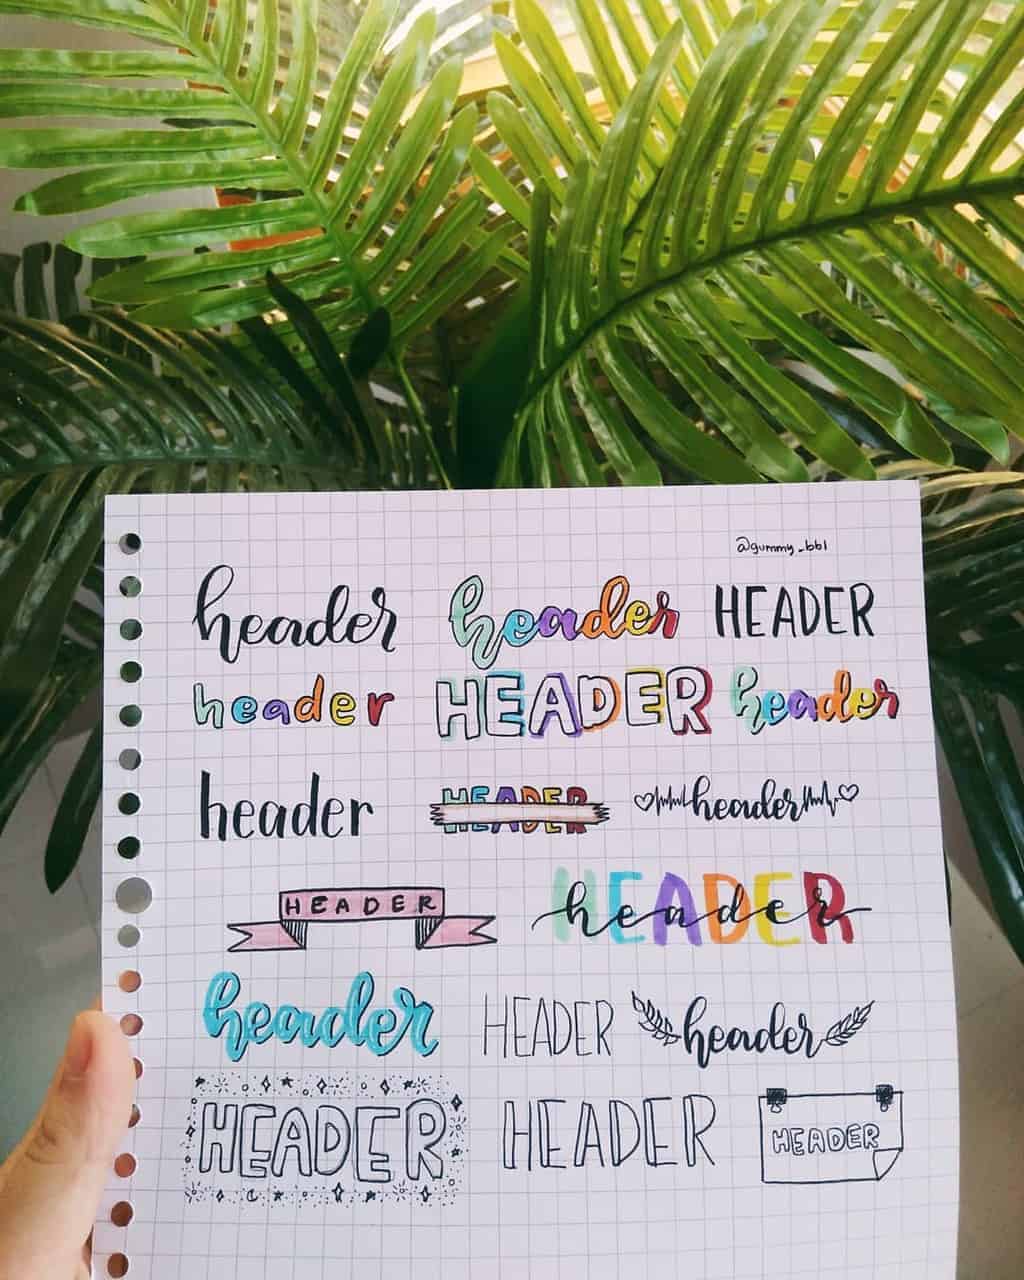 @gummy_bbl
header header HEADER
header HEADER header
header HEADER header
HEADER header HEADER
header HEADER header
HEADER HEADER HEADER